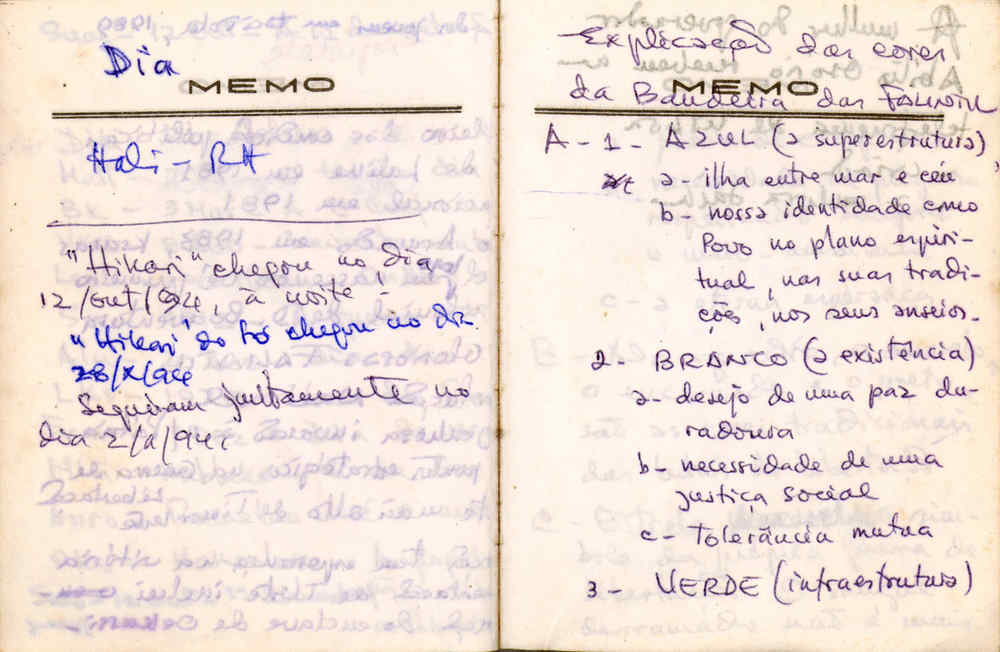 Dia
MEMO
Hali - RH
"Hikari" chegou no dia
12/out/94, à noite.
"Hikari" do to chegou no dia
28/X/94
Seguiram juntamente no
dia 2/
MEMO
Explicação das cores
da Bandeira das
A - 1 - AZUL (a superestrutura)
a - ilha entre mar e céu
b - nossa identidade como
Povo no plano espiri-
tual, nas suas tradi-
ções, nos seus anseios.
2 - BRANCO (a existência)
a - desejo de uma paz du-
radoura
b - necessidade de uma
justiça social
c - Tolerância mutua
3 - VERDE (infraestrutura)